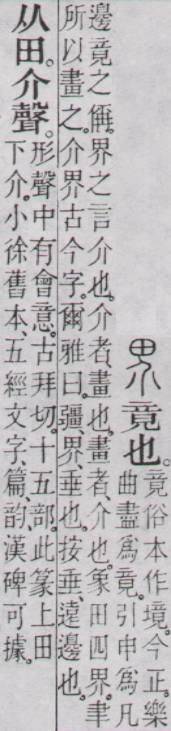 界 竟也。
竟俗本作境。今正。樂
曲盡爲竟。引申爲凡
邊竟之偁。界之言介也。介者、畫也。畫者、介也。象田四界。聿
所以畫之。介界古今字。爾雅曰。疆、界、垂也。按垂、遠邊也。
从田。介聲。
形聲中有會意。古拜切。十五部。此篆上田
下介。小徐舊本、五經文字、篇、韵、漢碑可據。